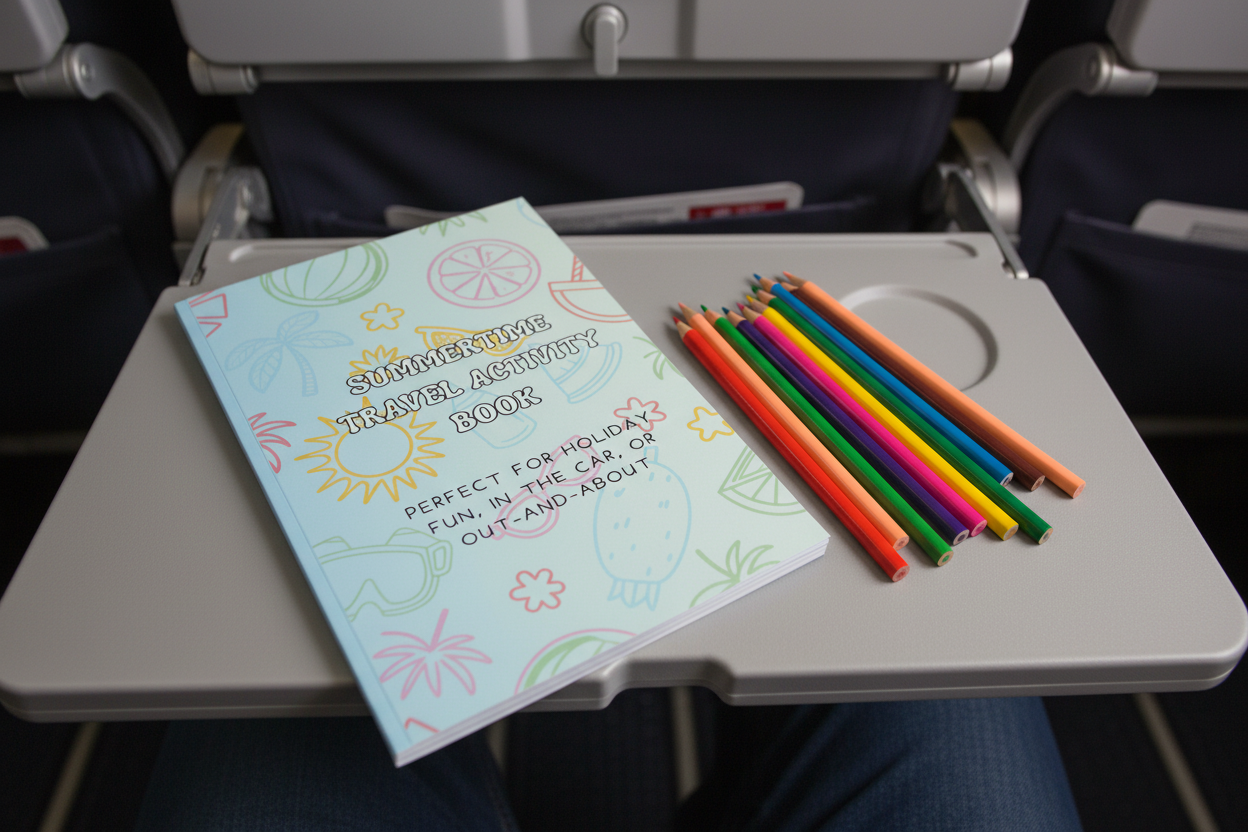 SUMMERTIME
TRAVEL ACTIVITY
BOOK
PERFECT FOR HOLIDAY
FUN, IN THE CAR, OR
OUT-AND-ABOUT